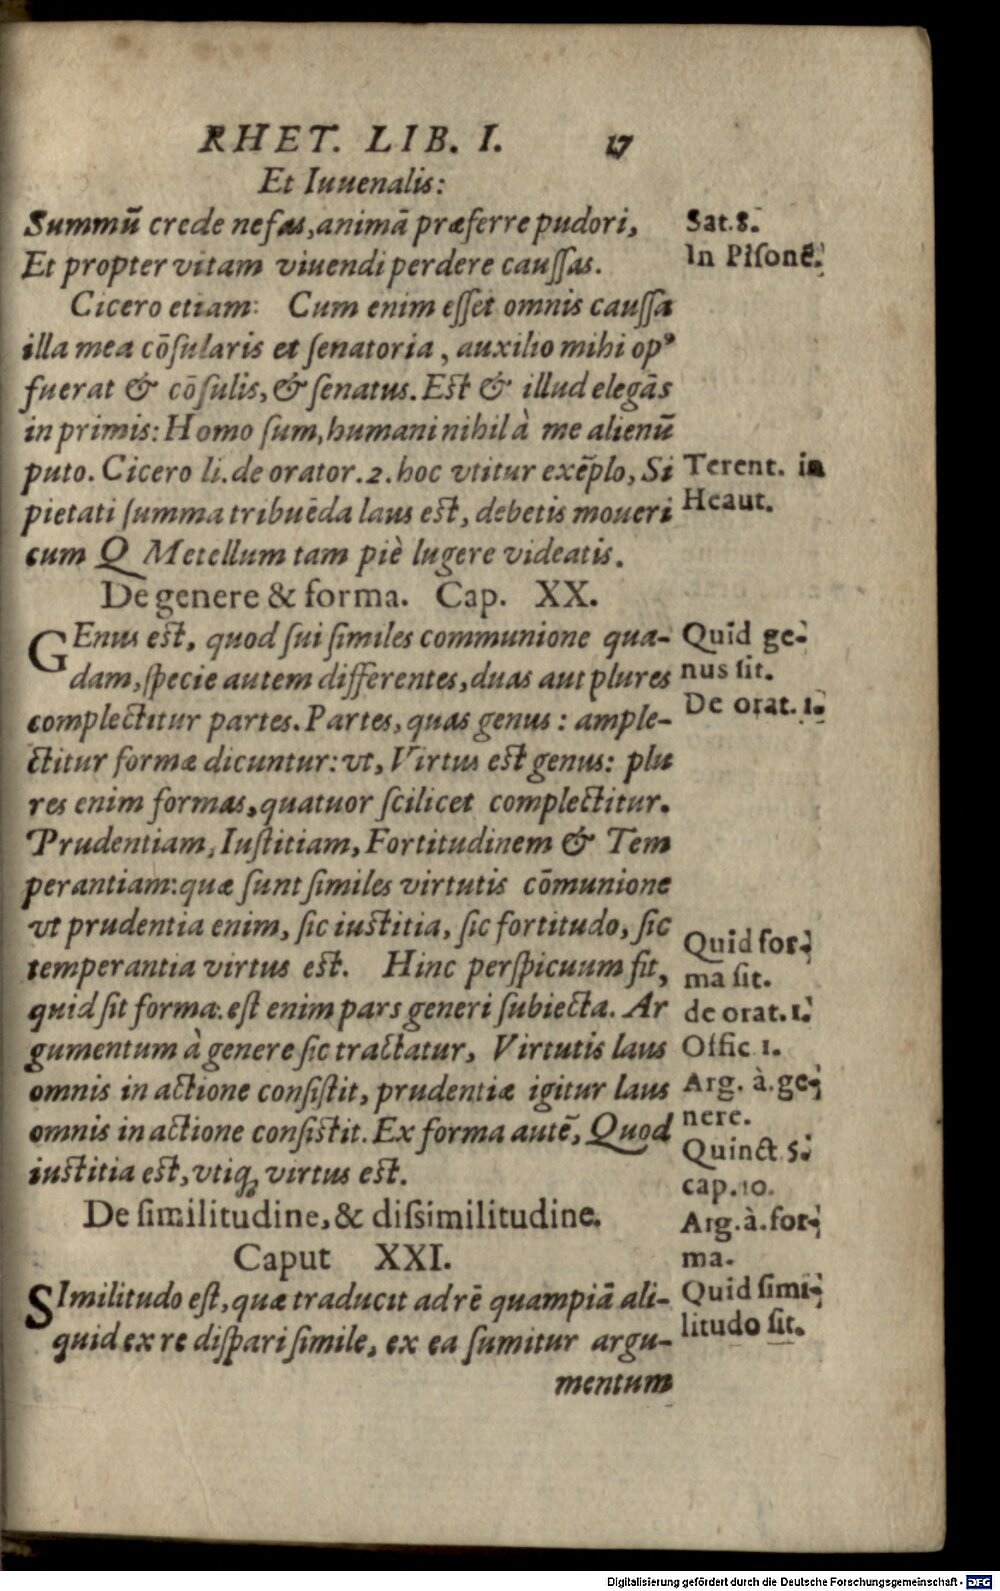 RHET. LIB. I. 17
Et Iuuenalis:
Summū crede nefas, animā præferre pudori,
Et propter vitam viuendi perdere cauſſas.
Cicero etiam: Cum enim eſſet omnis cauſſa
illa mea cōſularis et ſenatoria, auxilio mihi opꝰ
fuerat & cōſulis, & ſenatus. Eſt & illud elegās
in primis: Homo ſum, humani nihil à me alienū
puto. Cicero li. de orator. 2. hoc vtitur exēplo, Si
pietati ſumma tribuēda laus eſt, debetis moueri
cum Q Metellum tam piè lugere videatis.
De genere & forma. Cap. XX.
GEnus eſt, quod ſui ſimiles communione qua-
dam, ſpecie autem differentes, duas aut plures
complectitur partes. Partes, quas genus: ample-
ctitur formæ dicuntur: vt, Virtus eſt genus: plu
res enim formas, quatuor ſcilicet complectitur.
Prudentiam, Iuſtitiam, Fortitudinem & Tem
perantiam: quæ ſunt ſimiles virtutis cōmunione
vt prudentia enim, ſic iuſtitia, ſic fortitudo, ſic
temperantia virtus eſt. Hinc perſpicuum fit,
quid ſit forma: eſt enim pars generi ſubiecta. Ar
gumentum à genere ſic tractatur, Virtutis laus
omnis in actione conſiſtit, prudentiæ igitur laus
omnis in actione conſiſtit. Ex forma autē, Quod
iuſtitia eſt, vtiqꝫ virtus eſt.
De ſimilitudine, & diſsimilitudine.
Caput XXI.
SImilitudo eſt, quæ traducit ad rē quampiā ali-
quid ex re diſpari ſimile, ex ea ſumitur argu-
mentum
Sat. 8.
In Piſonē.
Terent. in
Heaut.
Quid ge-
nus ſit.
De orat. 1.
Quid for-
ma ſit.
de orat. 1.
Offic 1.
Arg. à. ge-
nere.
Quinct 5.
cap. 10.
Arg. à. for-
ma.
Quid ſimi-
litudo ſit.
Digitalisierung gefördert durch die Deutsche Forschungsgemeinschaft - DFG